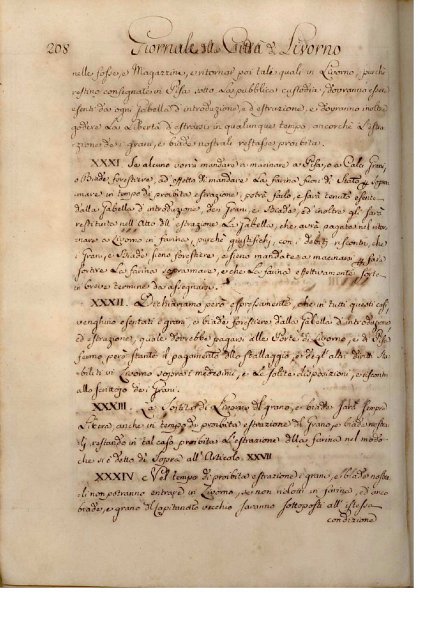 208 Giornale della Città di Livorno
nelle fosse, e Magazzini, e ritornar poi tale quali in Livorno, purchè
restino consegnate in Pisa sotto La pubblica custodia, dovranno esser
esenti da ogni Gabella d'introduzione, e d'estrazione, e dovranno inoltre
godere La Libertà d'estrarsi in qualunque tempo, ancorche L'estra
zione de i grani, e biade nostrali restasse proibita.
XXXI Se alcuno vorrà mandare a macinare a Pisa, o a Calci Grani
o Biade forestiere ad effetto di mandare La farina fuori di Stato
mare in tempo di proibita estrazione, potrà farlo, e sarà tenuto esente
dalla Gabella d'introduzione de i Grani, e Biade, ed inoltre gli sarà
restituita nell'Atto dell'estrazione La Gabella, che avrà pagata nel ritor
nare a Livorno in farina, purchè giustifichi, con i debiti riscontri, che
i Grani, e Biade sieno forestiere, e sieno mandate a macinare
sortire La farina sopra mare, e che La farina effettivamente sorta
in breve termine da assegnarsi.
XXXII. Dichiariamo però espressamente, che in tutti questi casi,
venghino esentati i grani, e biade forestiere dalla Gabella d'introduzione
ed estrazione, quale dovrebbe pagarsi alle Porte di Livorno, e di Pisa
fermo però stante il pagamento dello stallaggio, e degl'altri diritti sta
biliti in Livorno sopra i medesimi, e Le solite disposizioni, e riscontri
allo scrittojo de i Grani.
XXXIII. La sortita di Livorno del grano, e biade sarà sempre
Libera anche in tempo di proibita estrazione di Grano, e biade nostra
li, restando in tal caso proibita L'estrazione della farina nel modo
che si è detto di Sopra all'Articolo XXVII
XXXIV. Nel tempo di proibita estrazione i grani, e biade nostra
li non potranno entrare in Livorno, se non ridotti in farina, ed anco
biade, e grano del Capitanato vecchio saranno sottoposti all'istessa
condizione